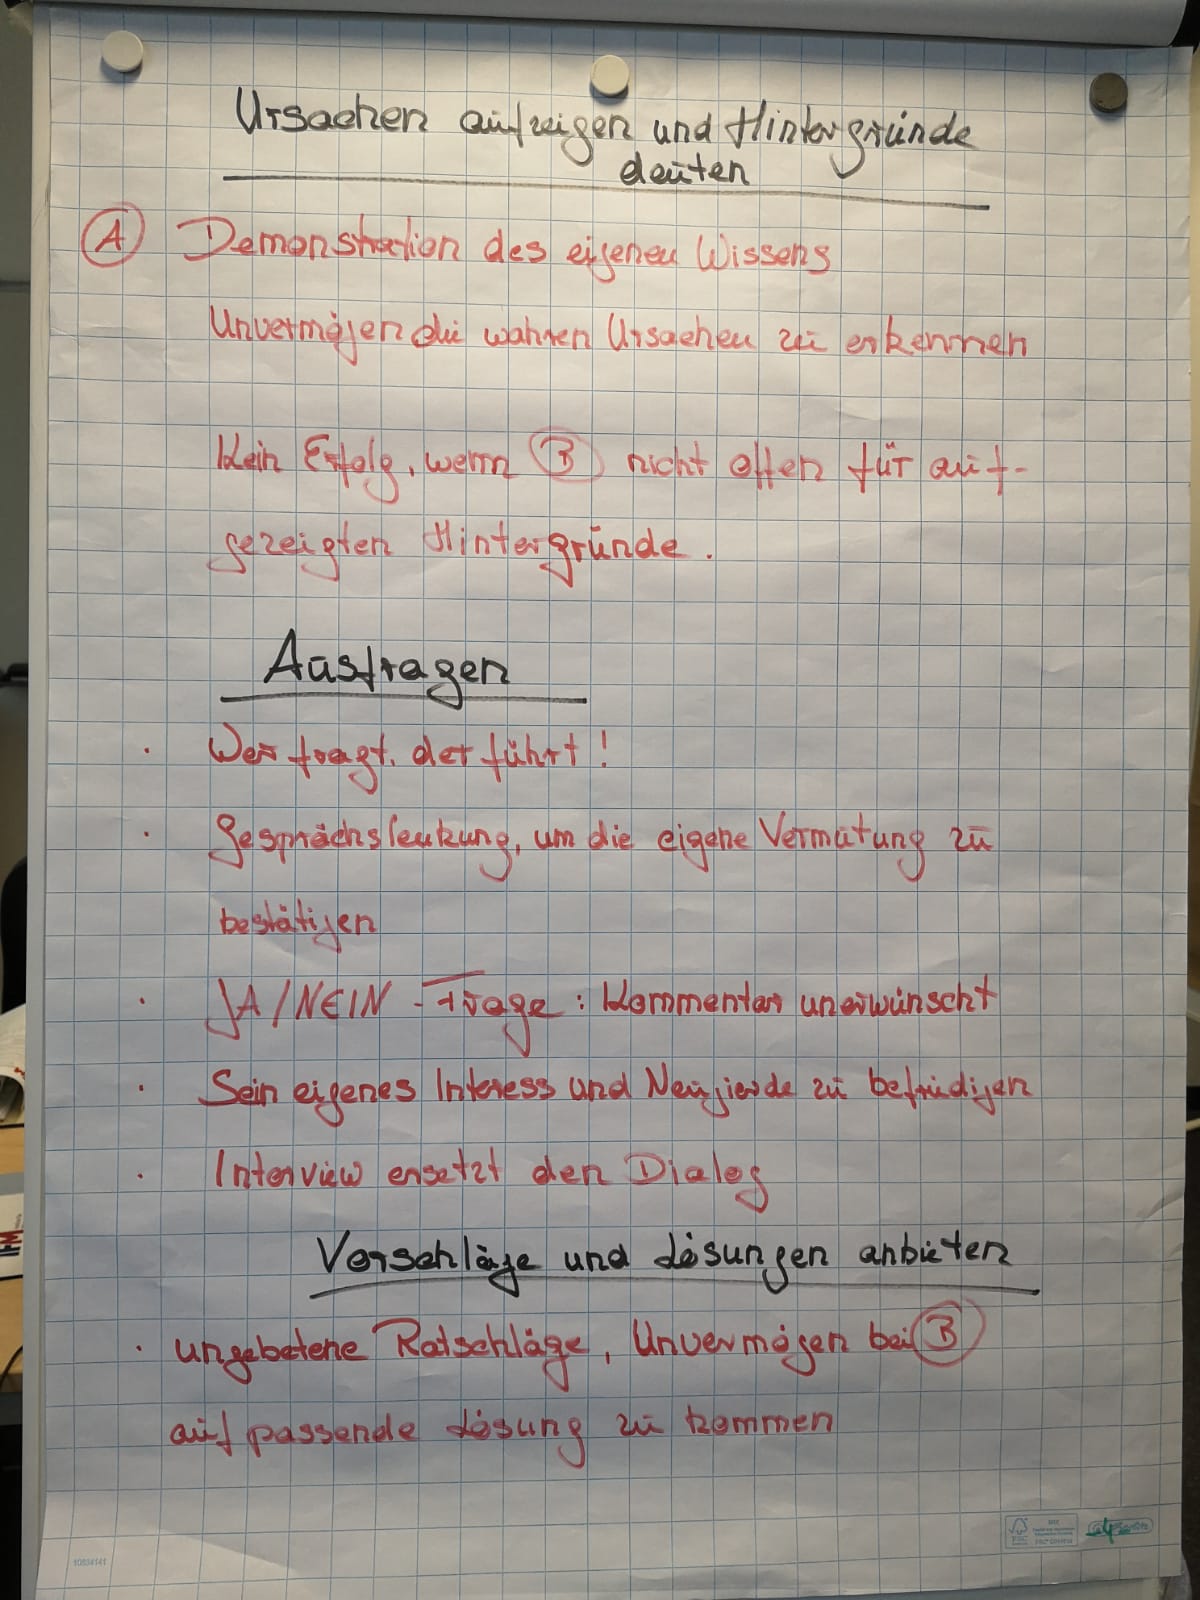 Ursachen aufzeigen und Hintergründe
deuten
A Demonstration des eigenen Wissens
Unvermögen die wahren Ursachen zu erkennen
Kein Erfolg, wenn B nicht offen für auf-
gezeigten Hintergründe.
Ausfragen
· Wer fragt, der führt!
· Gesprächslenkung, um die eigene Vermutung zu
bestätigen
· JA/NEIN - Frage: Kommentar unerwünscht
· Sein eigenes Interess und Neugierde zu befriedigen
· Interview ersetzt den Dialog
Vorschläge und Lösungen anbieten
· ungebetene Ratschläge, Unvermögen bei B
auf passende Lösung zu kommen
10934141